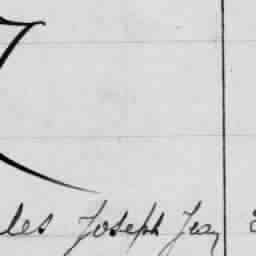 les Joseph Jean